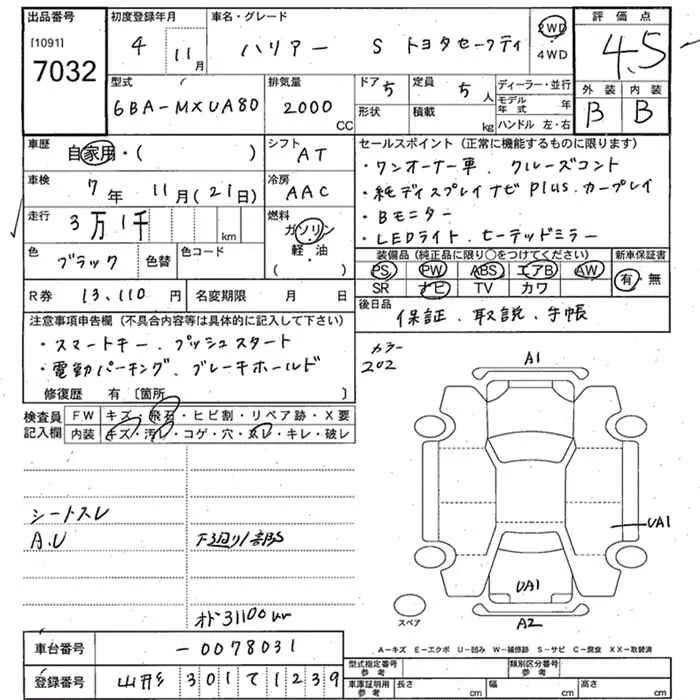 出品番号
[1091]
7032
初度登録年月
4 11月
車名・グレード
ハリアー S トヨタセーフティ
2WD
・
4WD
評価点
4.5
外装 内装
B B
型式
6BA-MXUA80
排気量
2000 CC
ドア 5
形状
定員 5人
積載 kg
ディーラー・並行
モデル年式 年
ハンドル 左・右
車歴 自家用・( )
シフト AT
車検 7年 11月(21日)
冷房 AAC
走行 3万1千 km
燃料 ガソリン
軽・油
( )
色 ブラック 色替 色コード
R券 13,110 円 名変期限 月 日
セールスポイント(正常に機能するものに限ります)
・ワンオーナー車. クルーズコント
・純ディスプレイナビ plus. カープレイ
・Bモニター
・LEDライト. ヒーテッドミラー
装備品(純正品に限り○をつけてください) 新車保証書
PS PW ABS エアB AW 有・無
SR ナビ TV カワ
後日品
保証. 取説. 手帳
注意事項申告欄(不具合内容等は具体的に記入して下さい)
・スマートキー. プッシュスタート
・電動パーキング. ブレーキホールド
修復歴 有〔箇所 〕
検査員記入欄
FW キズ・飛石・ヒビ割・リペア跡・X要
内装 キズ・汚レ・コゲ・穴・スレ・キレ・破レ
シートスレ
A.U 下廻り1部S
オド31100km
カラー
202
A1
UA1
UA1
A2
スペア
A-キズ E-エクボ U-凹み W-補修跡 S-サビ C-腐食 XX-取替済
車台番号 -0078031
登録番号 山形 301 て 1239
型式指定番号 参考 類別区分番号 参考
車庫証明用 参考 長さ cm 幅 cm 高さ cm